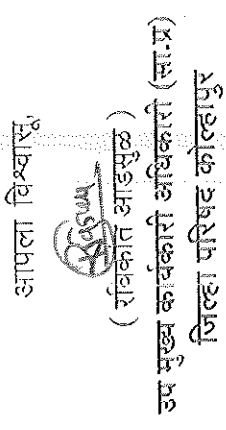 आपला विश्वासू,
( रविकांत आडसुळ )
उप मुख्य कार्यकारी अधिकारी (सा.प्र)
जिल्हा परिषद कोल्हापुर